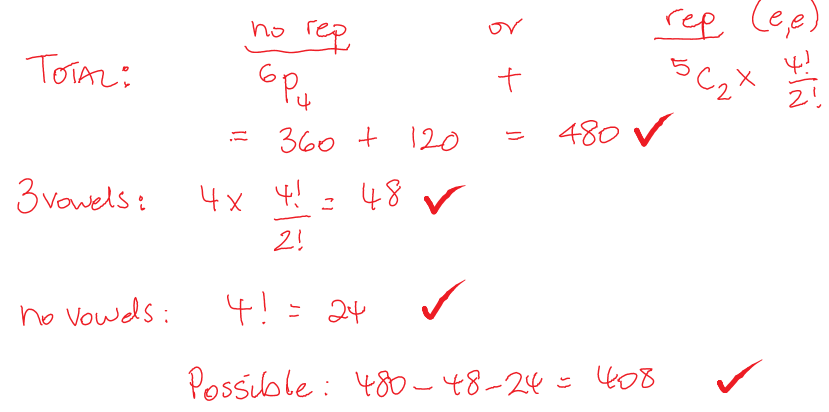 no rep or rep (e,e)
TOTAL: ⁶P₄ + ⁵C₂ × 4!/2!
= 360 + 120 = 480 ✓
3 vowels: 4 × 4!/2! = 48 ✓
no vowels: 4! = 24 ✓
Possible: 480 - 48 - 24 = 408 ✓